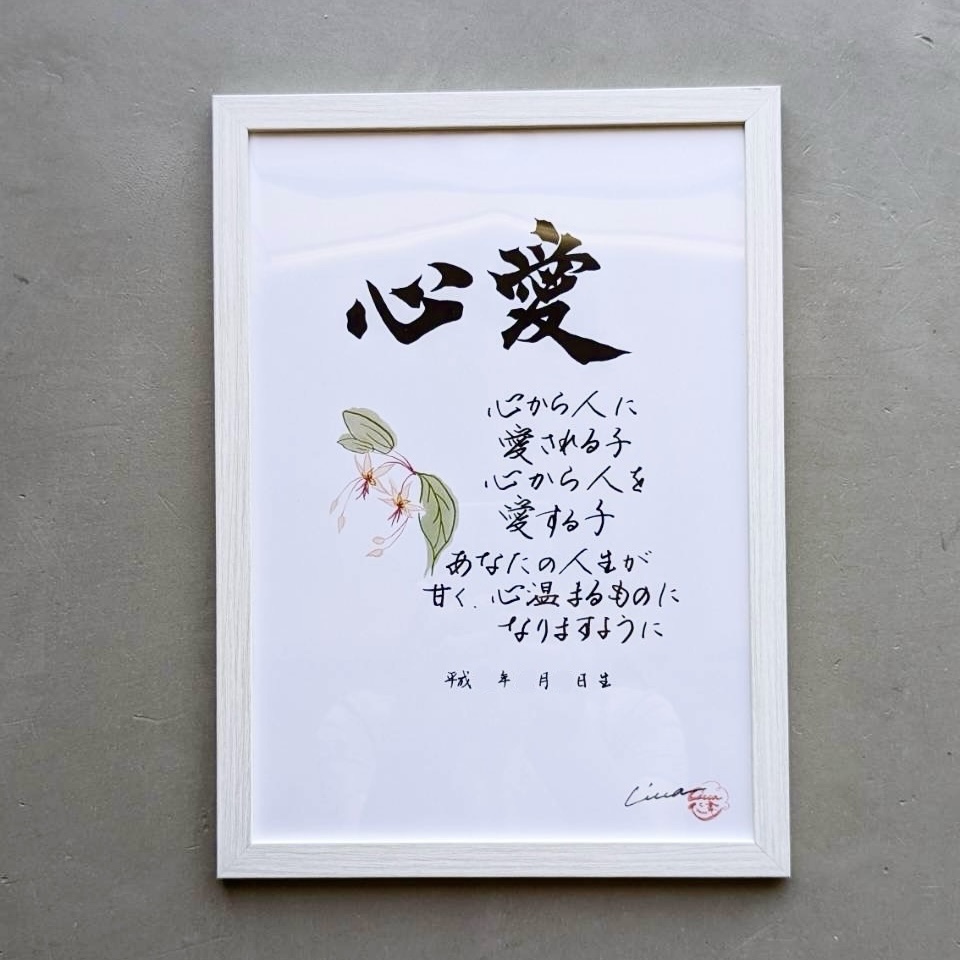 心愛
心から人に
愛される子
心から人を
愛する子
あなたの人生が
甘く、心温まるものに
なりますように
平成 年 月 日生